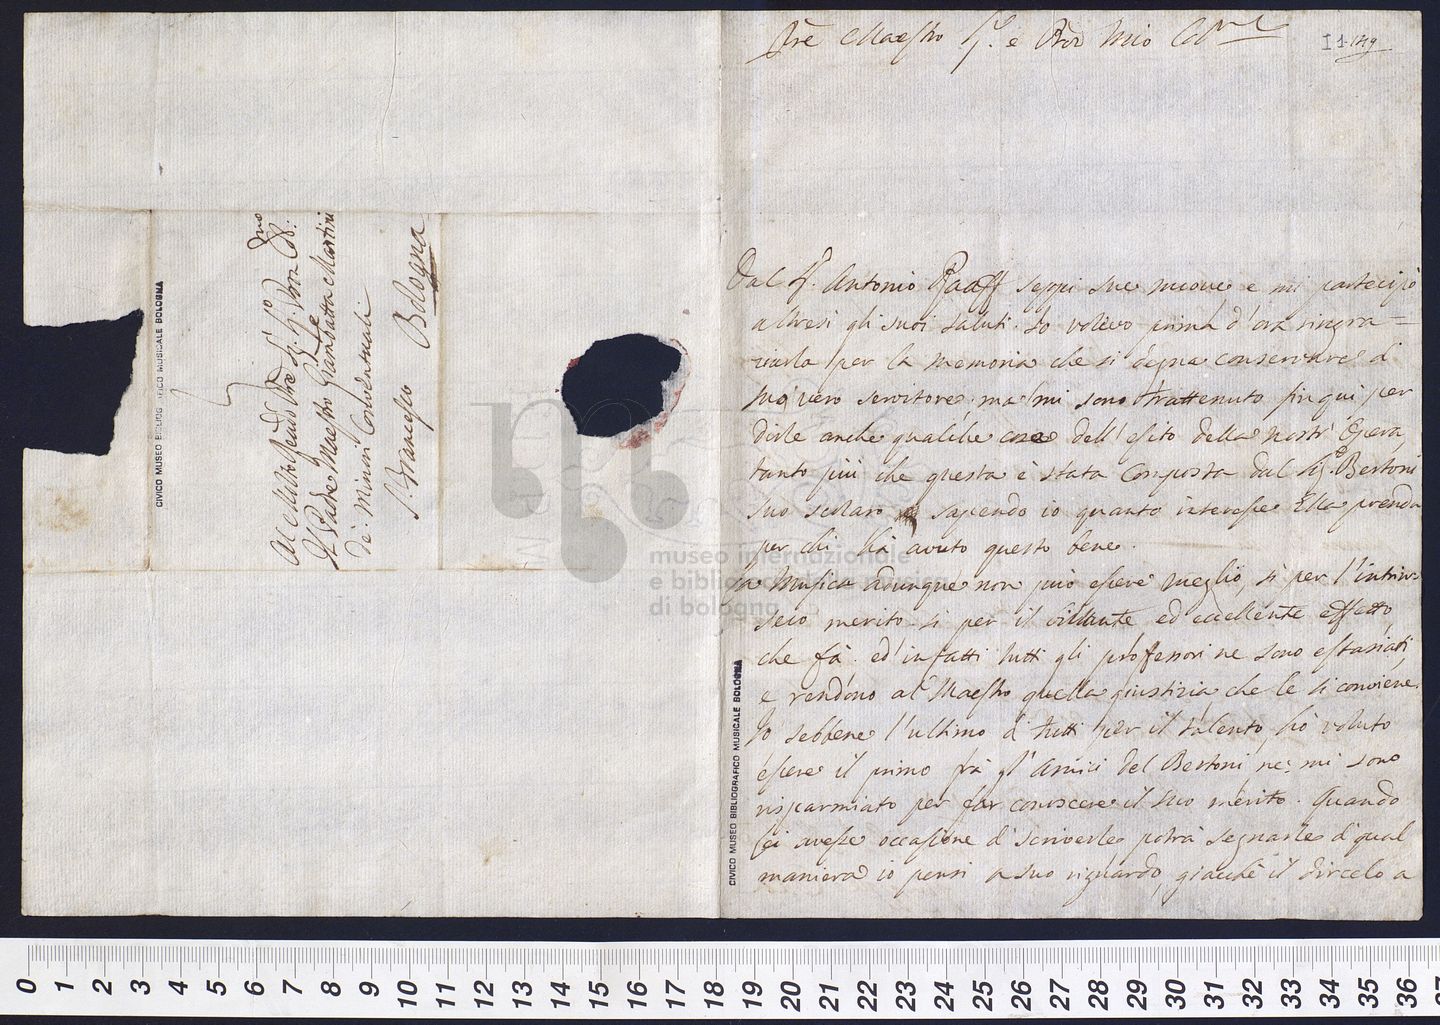 Al Molto Revdo Pre Sigr Sigr Pron Col.mo
Il Padre Maestro Gianbatta Martini
de Minori Conventuali
S. Francesco Bologna
CIVICO MUSEO BIBLIOGRAFICO MUSICALE BOLOGNA
Pre Maestro Sigr e Pron mio
I 1 149
Dal Sigr Antonio Raaff seppi sue nuove e mi partecipò
altresì gli suoi saluti. Io volevo prima d'ora ringra=
ziarla per la memoria che si degna conservare di
suo vero servitore; ma mi sono trattenuto fin qui per
dirle anche qualche cosa dell'esito della nostr'Opera,
tanto più che questa è stata composta dal Sigr Bertoni
suo scolaro, sapendo io quanto interesse Ella prenda
per chi hà avuto questo bene.
La Musica adunque non può essere meglio, sì per l'intrin-
seco merito, sì per il brillante ed eccellente effetto,
che fà. ed'infatti tutti gli professori ne sono estasiati,
e rendono al Maestro quella giustizia che le si conviene.
Io sebbene l'ultimo di tutti per il talento hò voluto
essere il primo frà gl'Amici del Bertoni ne mi sono
risparmiato per far conoscere il suo merito. Quando
Lei avesse occasione di scriverle potrà segnarle di qual
maniera io pensi a suo riguardo, giacchè il dircelo a
CIVICO MUSEO BIBLIOGRAFICO MUSICALE BOLOGNA
museo internazionale
e biblioteca della musica
di bologna
0 1 2 3 4 5 6 7 8 9 10 11 12 13 14 15 16 17 18 19 20 21 22 23 24 25 26 27 28 29 30 31 32 33 34 35 36 37